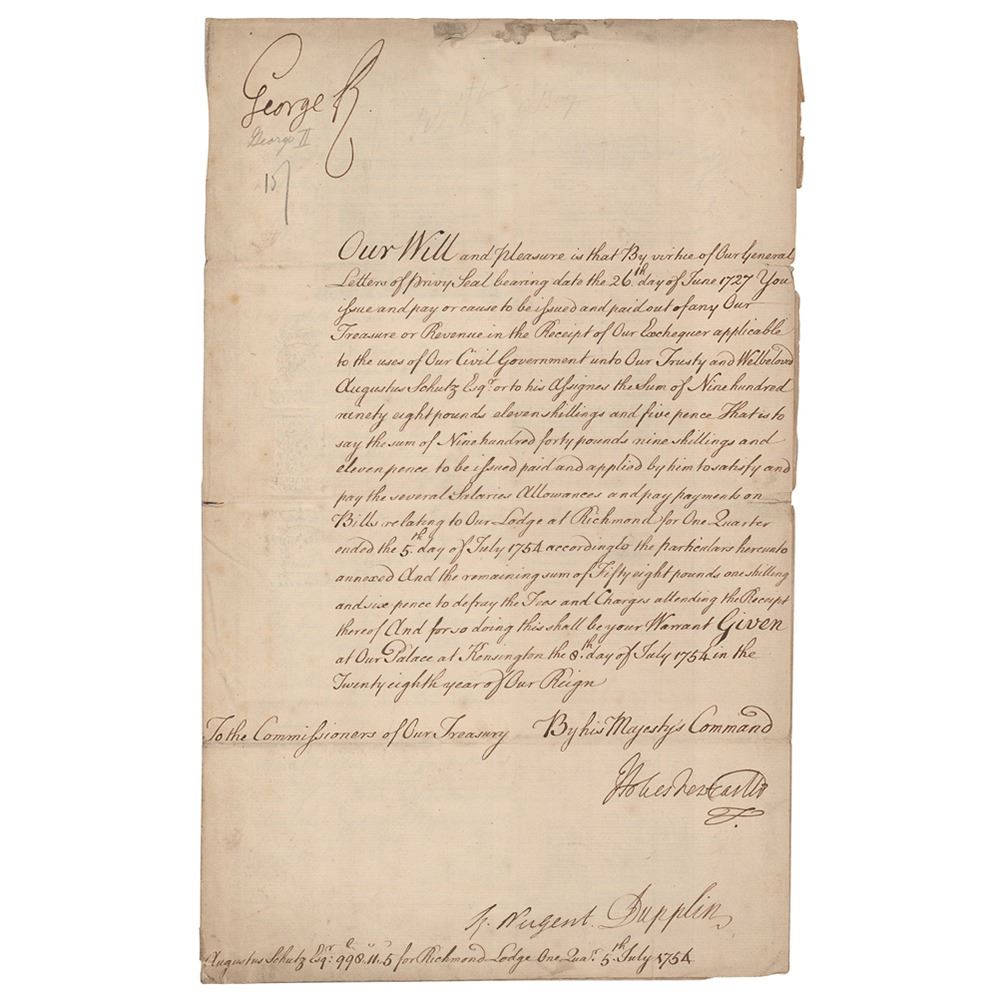 George R.
George II
Our Will and pleasure is that By virtue of Our General
Letters of Privy Seal bearing date the 26th day of June 1727 You
issue and pay or cause to be issued and paid out of any Our
Treasure or Revenue in the Receipt of Our Exchequer applicable
to the uses of Our Civil Government unto Our Trusty and Welbeloved
Augustus Schutz Esqr. or to his Assignes the Sum of Nine hundred
ninety eight pounds eleven shillings and five pence That is to
say the sum of Nine hundred forty pounds nine shillings and
eleven pence to be issued paid and applied by him to satisfy and
pay the several Salaries Allowances and pay payments on
Bills relating to Our Lodge at Richmond for One Quarter
ended the 5th day of July 1754 according to the particulars hereunto
annexed And the remaining sum of Fifty eight pounds one shilling
and six pence to defray the Fees and Charges attending the Receipt
thereof And for so doing this shall be your Warrant Given
at Our Palace at Kensington the 8th day of July 1754 in the
Twenty eighth year of Our Reign
To the Commissioners of Our Treasury By his Majesty's Command
Holles Newcastle
R. Nugent. Dupplin
Augustus Schutz Esqr: 998.11.5 for Richmond Lodge One Quar. 5th July 1754